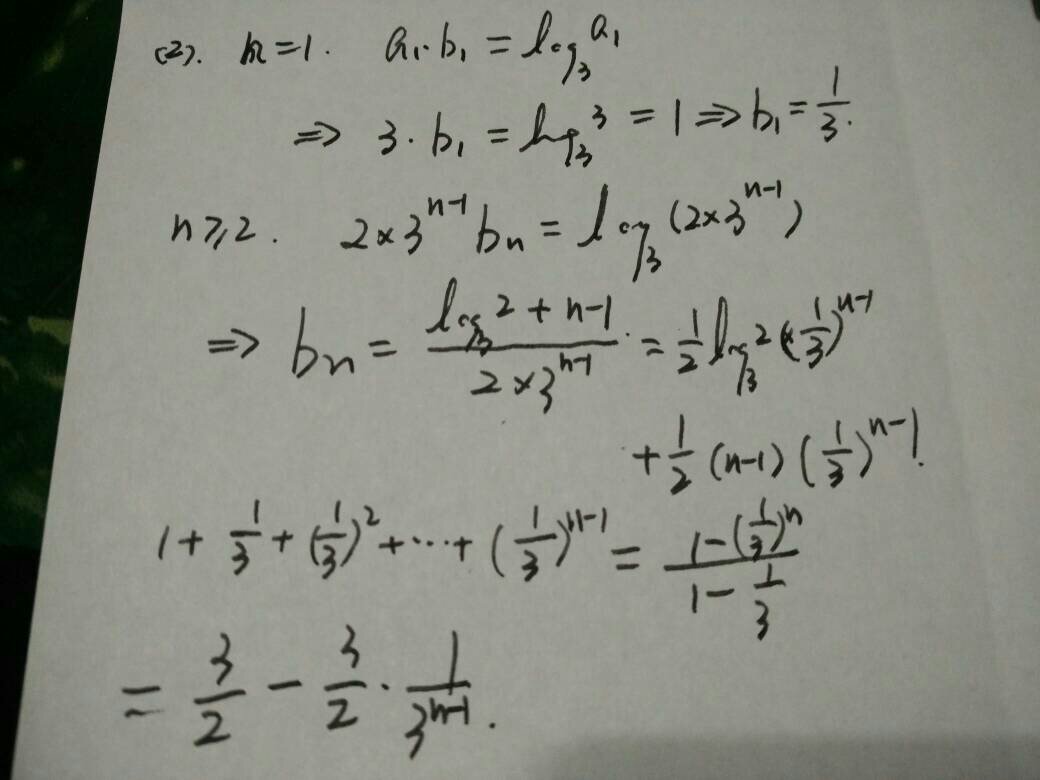 (2). n=1. a₁·b₁ = log₃a₁
⇒ 3·b₁ = log₃3 = 1 ⇒ b₁ = 1/3.
n≥2. 2×3^(n-1) bₙ = log₃(2×3^(n-1))
⇒ bₙ = (log₃2 + n-1)/(2×3^(n-1)) = 1/2 log₃2 × (1/3)^(n-1)
+ 1/2 (n-1) (1/3)^(n-1).
1 + 1/3 + (1/3)² + ··· + (1/3)^(n-1) = (1-(1/3)^n)/(1-1/3)
= 3/2 - 3/2 · 1/3^(n-1).